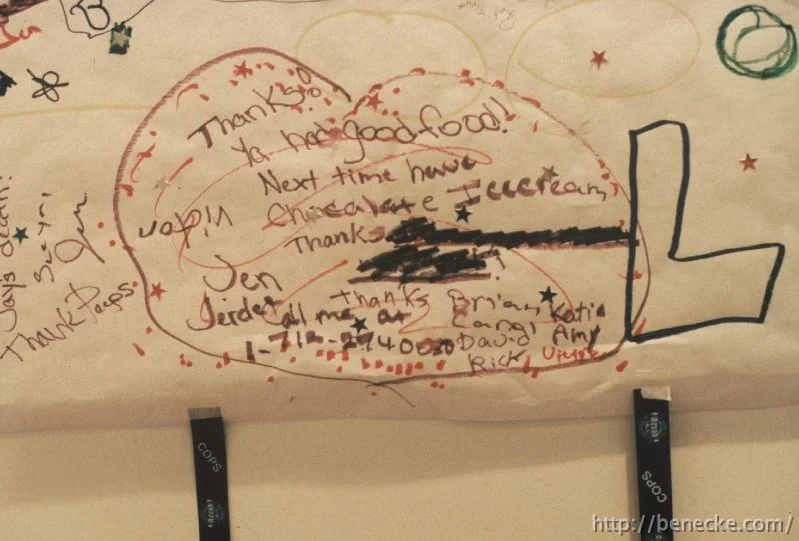 Thanks!
Ya had good food!!
Next time have
Chocalate Icecream,
Thanks
Jen
Call me at
1-712-2740020
Thanks Brian,
Carol
David
Rick
Katie
Amy
Thank Peeps
COPS
COPS
http://benecke.com/